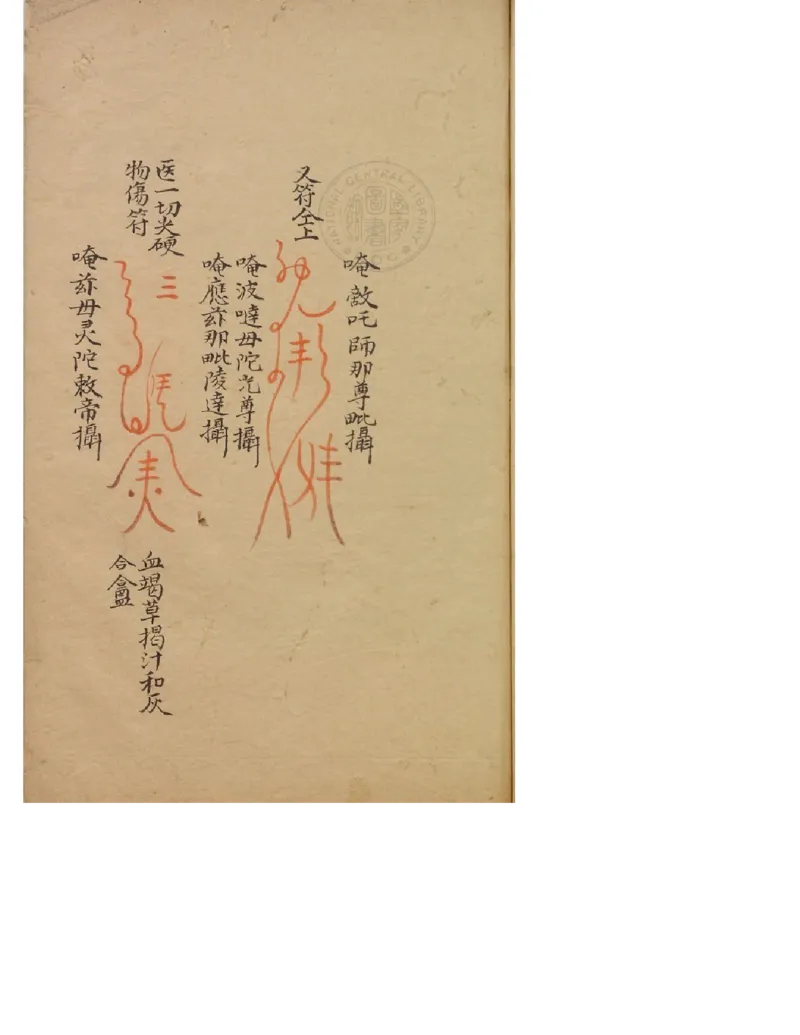 唵敵吒師那尊毗攝
又符仝上
唵波噠毋陀光尊攝
唵應茲那毗陵達攝
医一切尖硬
物傷符
三
唵茲毋灵陀敕帝攝
血竭草揭汁和灰
合盦
NATIONAL CENTRAL LIBRARY